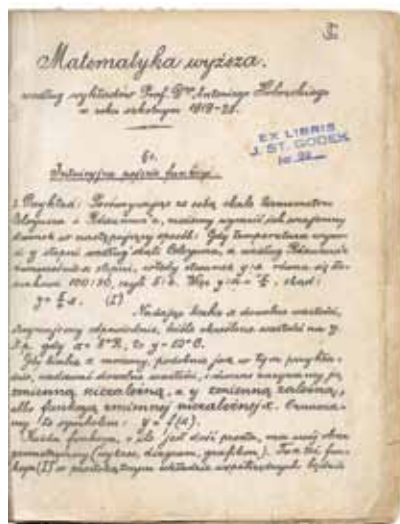 Matematyka wyższa.
według wykładów Prof. Dra Antoniego Hoborskiego
w roku szkolnym 1919-20.
EX LIBRIS
J. ST. GODEK
Nr.
§1.
Intuicyjne pojęcie funkcji.
Przykład: Porównywając ze sobą skale termometru
Celsyusza i Réaumura, możemy wyrazić ich wzajemny
stosunek w następujący sposób: Gdy temperatura wynosi
y stopni według skali Celsyusza, a według Réaumura
x stopni, wtedy stosunek y:x równa się
100:80, czyli 5:4. Więc y:x = 5/4, skąd:
y = 5/4 x. (I)
Nadając liczbie x dowolne wartości,
otrzymujemy odpowiednie, ściśle określone wartości na y.
N.p. gdy x = 8°R, to y = 10°C.
Gdy liczbie x możemy, podobnie jak w tym przykładzie,
nadawać dowolne wartości, i nazywamy ją
zmienną niezależną, a y zmienną zależną,
albo funkcją zmiennej niezależnej x. Oznaczamy
to symbolem: y = f(x).
Każda funkcja, o ile jest dość prosta, ma swój obraz
geometryczny (wykres, diagram, grafikon). Tak też funkcja
(I) w prostokątnym układzie współrzędnych będzie